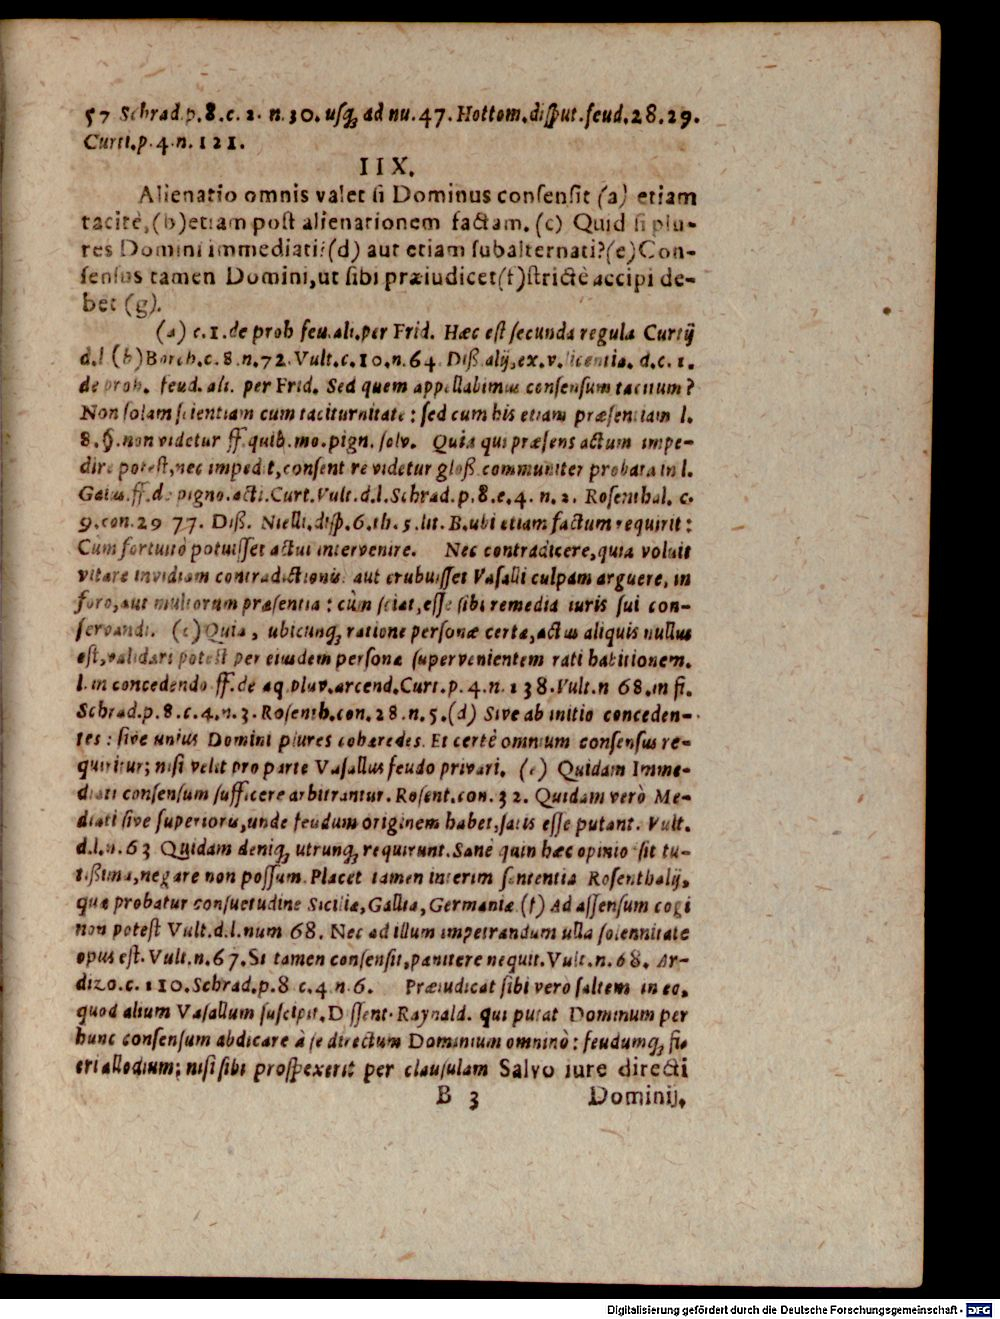 57 Schrad.p.8.c.2. n.30. usq; ad nu.47. Hottom.disput.feud.28.29.
Curti.p.4.n.121.
IIX.
Alienatio omnis valet si Dominus consensit (a) etiam
tacitè,(b)etiam post alienationem factam.(c) Quid si plu-
res Domini immediati?(d) aut etiam subalternati?(e)Con-
sensus tamen Domini,ut sibi præiudicet(f)strictè accipi de-
bet (g).
(a) c.1.de prob feu.ali.per Frid. Hæc est secunda regula Curtij
d.l (b)Borch.c.8.n.72.Vult.c.10.n.64 Diß alij,ex.v.licentia. d.c.1.
de prob. feud. ali. per Frid. Sed quem appellabimus consensum tacitum?
Non solam scientiam cum taciturnitate: sed cum his etiam præsentiam l.
8.§.non videtur ff.quib.mo.pign.solv. Quia qui præsens actum impe-
dire potest,nec impedit,consentire videtur gloß.communiter probata in l.
Gaius.ff.de pigno.acti.Curt.Vult.d.l.Schrad.p.8.c.4. n.2. Rosenthal. c.
9.con.29 77. Diß. Nielli,disp.6.th.5.lit.B.ubi etiam factum requirit:
Cum fortuitò potuisset actui intervenire. Nec contradicere,quia voluit
vitare invidiam contradictionis: aut erubuisset Vasalli culpam arguere, in
foro,aut multorum præsentia: cùm sciat,esse sibi remedia iuris sui con-
servandi. (c)Quia, ubicunq; ratione personæ certæ,actus aliquis nullus
est,validari potest per eiusdem personæ supervenientem rati habitionem.
l.in concedendo ff.de aq.pluv.arcend.Curt.p.4.n.138.Vult.n 68.in fi.
Schrad.p.8.c.4.n.3.Rosenth.con.28.n.5.(d) Sive ab initio conceden-
tes: sive unius Domini plures cohæredes. Et certè omnium consensus re-
quiritur; nisi velit pro parte Vasallus feudo privari. (e) Quidam Imme-
diati consensum sufficere arbitrantur.Rosent.con.32. Quidam verò Me-
diati sive superioris,unde feudum originem habet,satis esse putant. Vult.
d.l.n.63 Quidam deniq; utrunq; requirunt.Sanè quin hæc opinio sit tu-
tißima,negare non possum.Placet tamen interim sententia Rosenthalij,
quæ probatur consuetudine Siciliæ,Galliæ,Germaniæ.(f) Ad assensum cogi
non potest Vult.d.l.num 68. Nec ad illum impetrandum ulla solennitate
opus est.Vult.n.67.Si tamen consensit,pœnitere nequit.Vult.n.68. Ar-
dizo.c.110.Schrad.p.8 c.4.n.6. Præiudicat sibi vero saltem in eo,
quod alium Vasallum suscipit.Dissent.Raynald. qui putat Dominum per
hunc consensum abdicare à se directum Dominium omninò: feudumq; fi-
eri allodium; nisi sibi prospexerit per clausulam Salvo iure directi
B 3 Dominij,
Digitalisierung gefördert durch die Deutsche Forschungsgemeinschaft - DFG